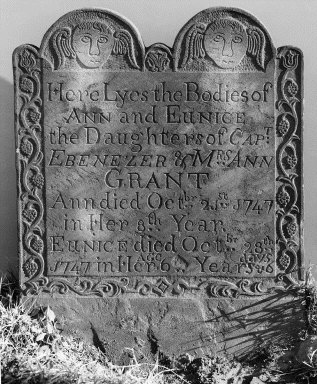 Here Lyes the Bodies of
ANN and EUNICE
the Daughters of Capt
EBENEZER & Mrs ANN
GRANT
Ann died Octbr 25th 1747
in Her 8th Year
EUNICE died Octbr 28th
1747 in Her 6th Year